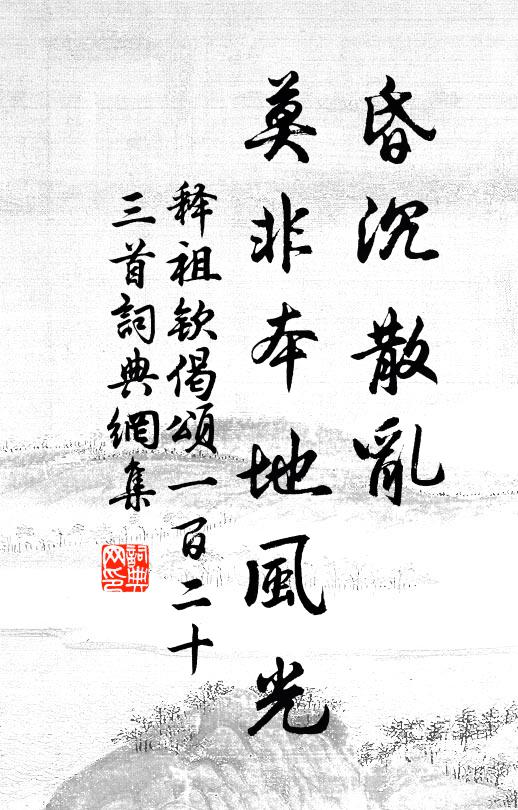 昏沉散亂
莫非本地風光
释祖欽偈頌一百二十
三首詞典網集
詞典
网印